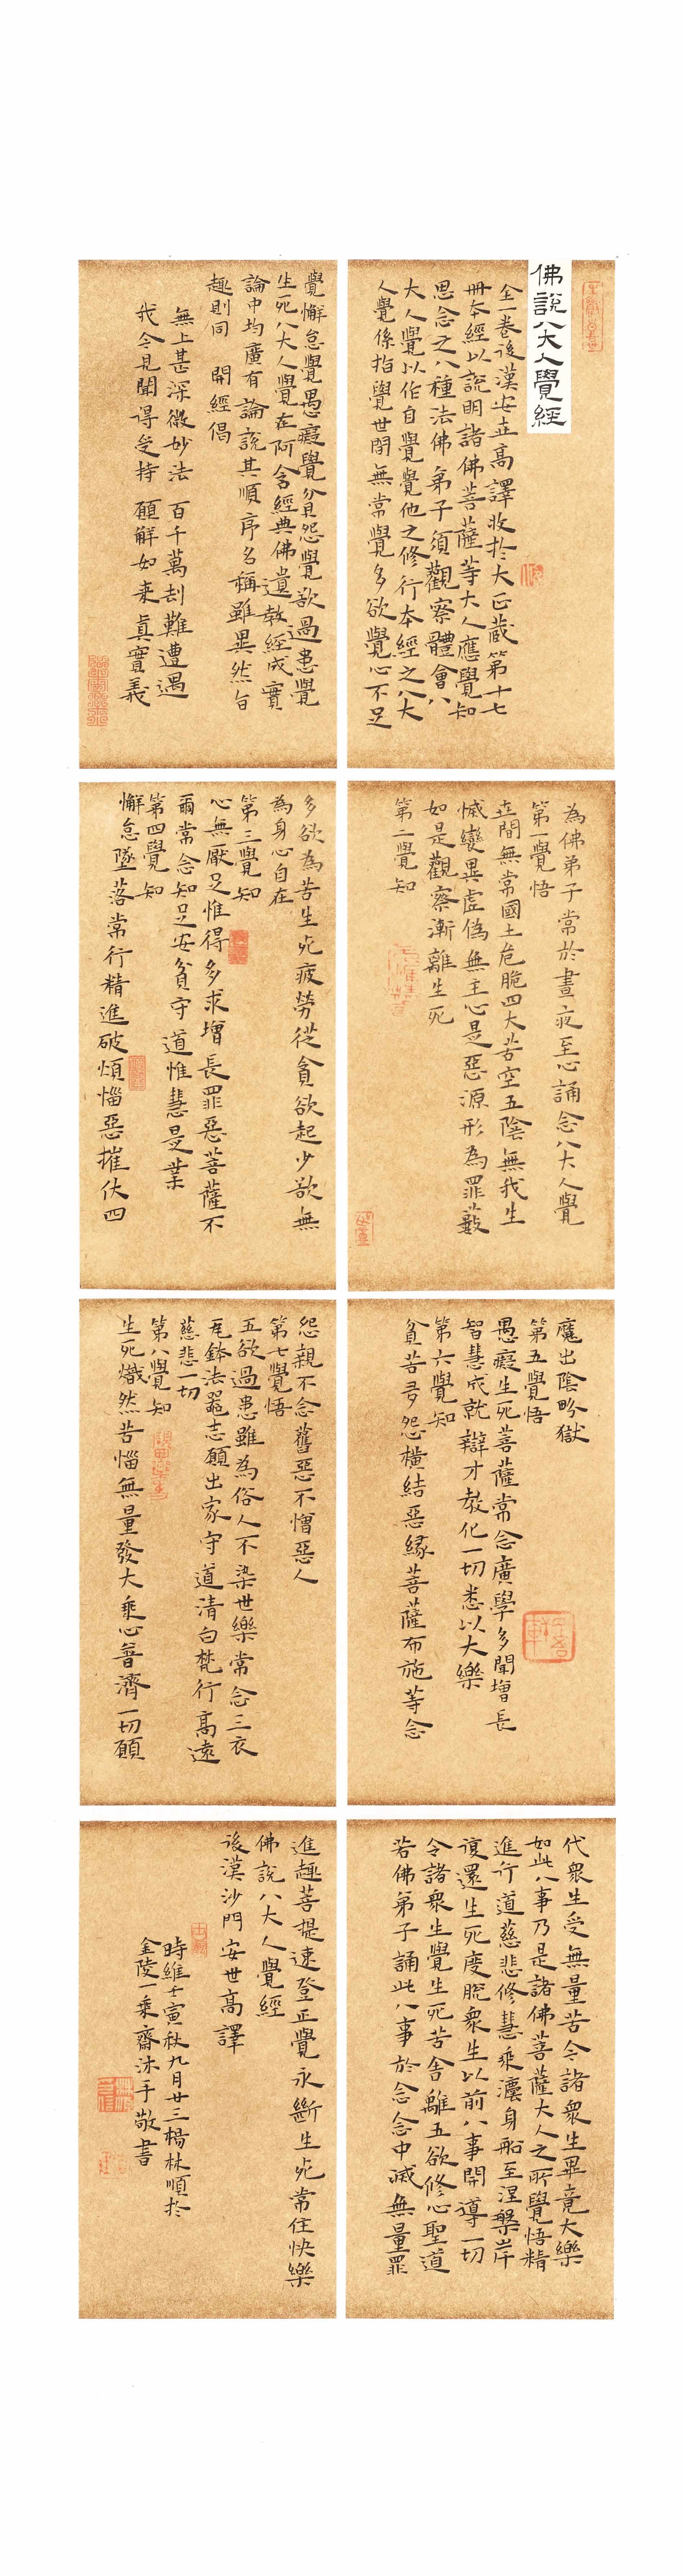 佛說八大人覺經
全一卷後漢安世高譯收於大正藏第十七
冊本經以說明諸佛菩薩等大人應覺知
思念之八種法佛弟子須觀察體會八
大人覺以作自覺覺他之修行本經之八大
人覺係指覺世間無常覺多欲覺心不足
覺懈怠覺愚癡覺貧怨覺欲過患覺
生死八大人覺在阿含經典佛遺教經成實
論中均廣有論說其順序名稱雖異然旨
趣則同 開經偈
無上甚深微妙法 百千萬劫難遭遇
我今見聞得受持 願解如來真實義
為佛弟子常於晝夜至心誦念八大人覺
第一覺悟
世間無常國土危脆四大苦空五陰無我生
滅變異虛偽無主心是惡源形為罪藪
如是觀察漸離生死
第二覺知
多欲為苦生死疲勞從貪欲起少欲無
為身心自在
第三覺知
心無厭足惟得多求增長罪惡菩薩不
爾常念知足安貧守道惟慧是業
第四覺知
懈怠墜落常行精進破煩惱惡摧伏四
魔出陰界獄
第五覺悟
愚癡生死菩薩常念廣學多聞增長
智慧成就辯才教化一切悉以大樂
第六覺知
貧苦多怨橫結惡緣菩薩布施等念
怨親不念舊惡不憎惡人
第七覺悟
五欲過患雖為俗人不染世樂常念三衣
瓦鉢法器志願出家守道清白梵行高遠
慈悲一切
第八覺知
生死熾然苦惱無量發大乘心普濟一切願
代眾生受無量苦令諸眾生畢竟大樂
如此八事乃是諸佛菩薩大人之所覺悟精
進行道慈悲修慧乘法身船至涅槃岸
復還生死度脫眾生以前八事開導一切
令諸眾生覺生死苦舍離五欲修心聖道
若佛弟子誦此八事於念念中滅無量罪
進趣菩提速登正覺永斷生死常住快樂
佛說八大人覺經
後漢沙門安世高譯
時維壬寅秋九月廿三楊林順於
金陵一乘齋沐手敬書